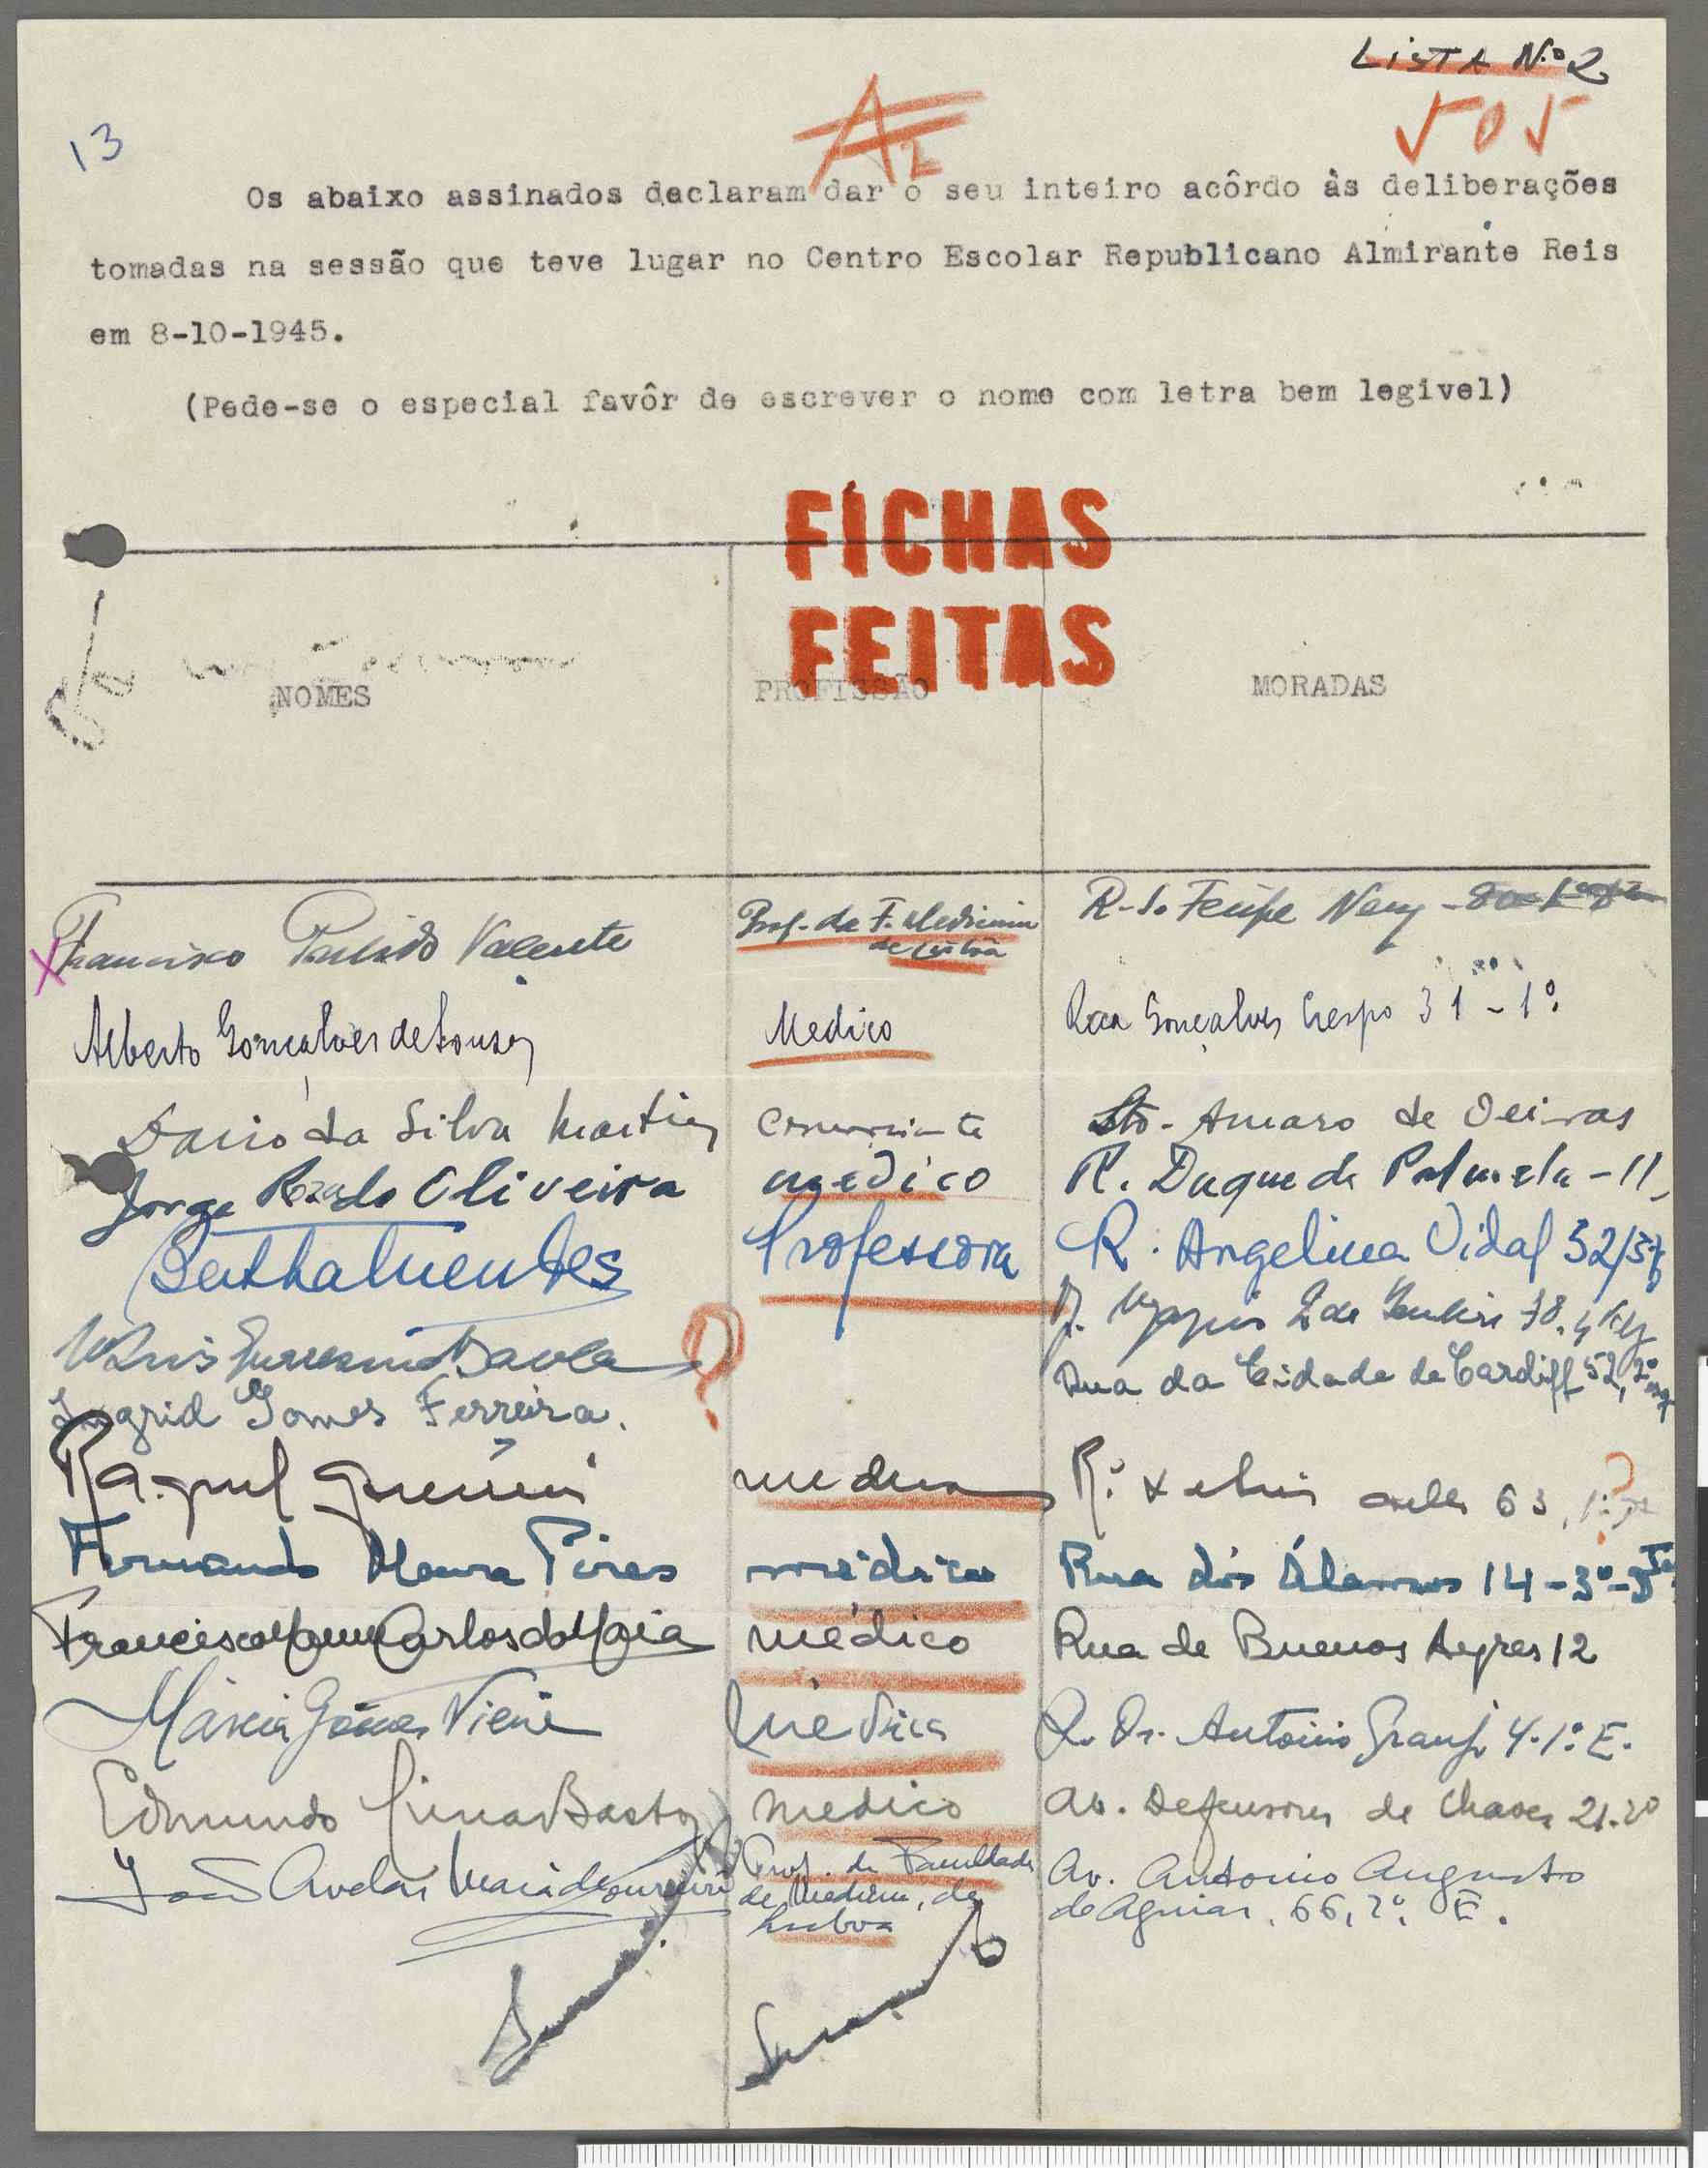 LISTA N.º 2
505
13
A2
Os abaixo assinados declaram dar o seu inteiro acôrdo às deliberações
tomadas na sessão que teve lugar no Centro Escolar Republicano Almirante Reis
em 8-10-1945.
(Pede-se o especial favôr de escrever o nome com letra bem legivel)
FICHAS
FEITAS
NOMES PROFISSÃO MORADAS
Francisco Pulido Valente Prof. da F. Medicina de Lisboa R. S. Felipe Nery
Alberto Gonçalves de Sousa Medico Rua Gonçalves Crespo 31-1º
Dario da Silva Martins Comerciante Sto. Amaro de Oeiras
Jorge Rosado Oliveira medico R. Duque de Palmela - 11
Bertha Mendes Professora R. Angelina Vidal 32/3º
?
Ingrid Gomes Ferreira. Rua da Cidade de Cardiff 52, 2º
Raquel medica R. 63, ?
Fernando Moura Pires médico Rua dos Álamos 14-3º-
Francisco Carlos da Maia médico Rua de Buenos Ayres 12
Gomes Médica R. Dr. Antonio Granjo 4-1º E.
Edmundo Lima Basto medico Av. Defensores de Chaves 21-2º
João Avelar Maia de Loureiro Prof. da Faculdade Av. Antonio Augusto
de Medicina, de de Aguiar, 66, 2º, E.
Lisboa